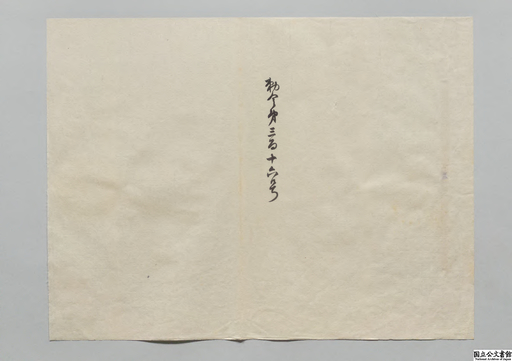 勅令第三百十六号
国立公文書館
National Archives of Japan